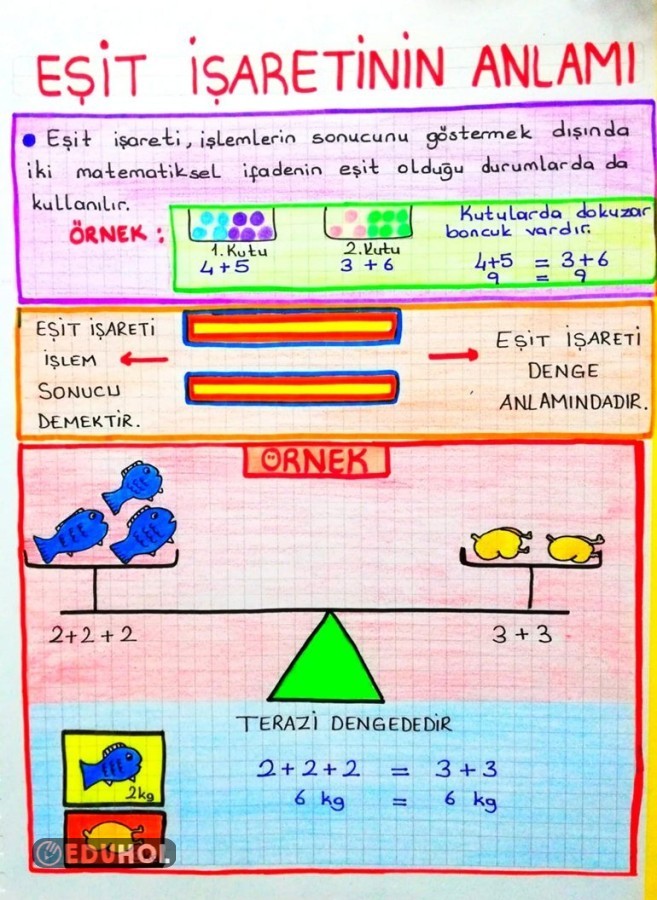 EŞİT İŞARETİNİN ANLAMI
Eşit işareti, işlemlerin sonucunu göstermek dışında
iki matematiksel ifadenin eşit olduğu durumlarda da
kullanılır.
ÖRNEK :
1. Kutu
4+5
2. Kutu
3 + 6
Kutularda dokuzar
boncuk vardır.
4+5 = 3+6
9 = 9
EŞİT İŞARETİ
İŞLEM
SONUCU
DEMEKTİR.
EŞİT İŞARETİ
DENGE
ANLAMINDADIR.
ÖRNEK
2+2+2
3 + 3
TERAZİ DENGEDEDİR
2+2+2 = 3+3
6 kg = 6 kg
2kg
EDUHOL